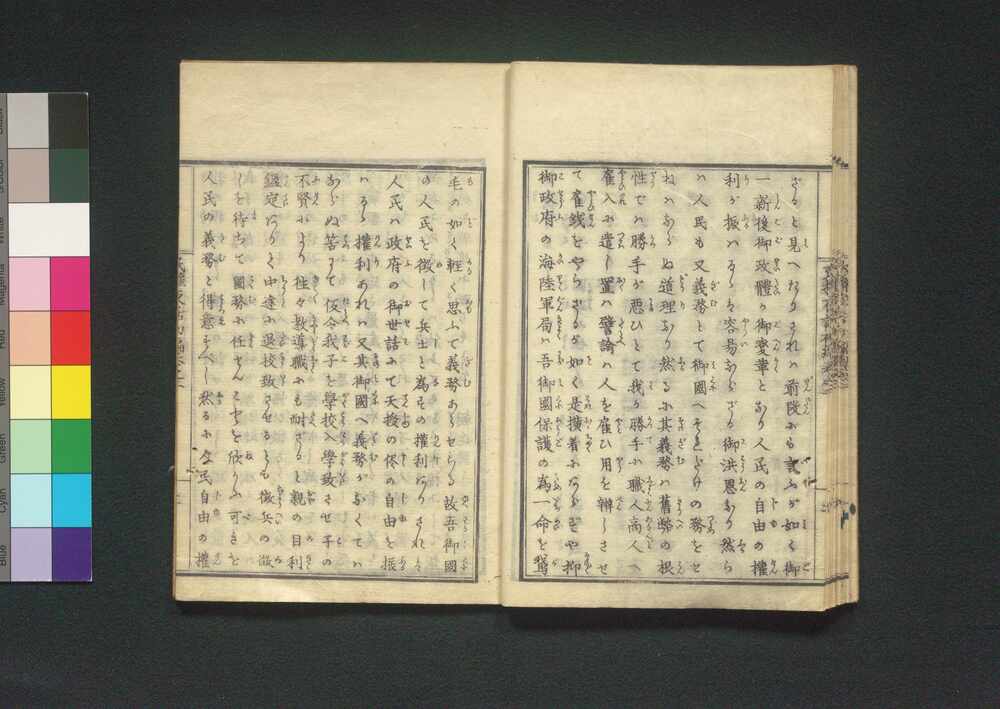 ざると見へたりされバ前段にも言ふが如く御
一新後御政體の御變革となり人民の自由の權
利を振ハるゝハ容易ならざる御洪恩なり然ら
バ人民も又義務とて御國へそれだけの務をせ
ねバならぬ道理なり然るに其義務ハ舊弊の根
性でハ勝手が悪ひとて我が勝手に職人商人へ
雇入に遣し置バ譬論ハ人を雇ひ用を辦じさせ
て雇銭をやらざるが如く是横着にあらずや抑
御政府の海陸軍局ハ吾御國保護の為一命を鴻
毛の如く輕く思ふて義務あらせらる故吾御國
の人民を徴して兵士と為その權利なりされバ
人民ハ政府の御世話にて天授の侭の自由を振
ハるゝ權利あれバ又其御國へ義務がなくてハ
ならぬ筈にて仮令我子を學校入學致させ子の
不賢により往々教導職にも耐ざると親の目利
鑑定なりて中途に退校致させるとも徴兵の徴
しを待ちて國務に任せんことを欣ふ可きを
人民の義務と得意すべし然るに全民自由の權